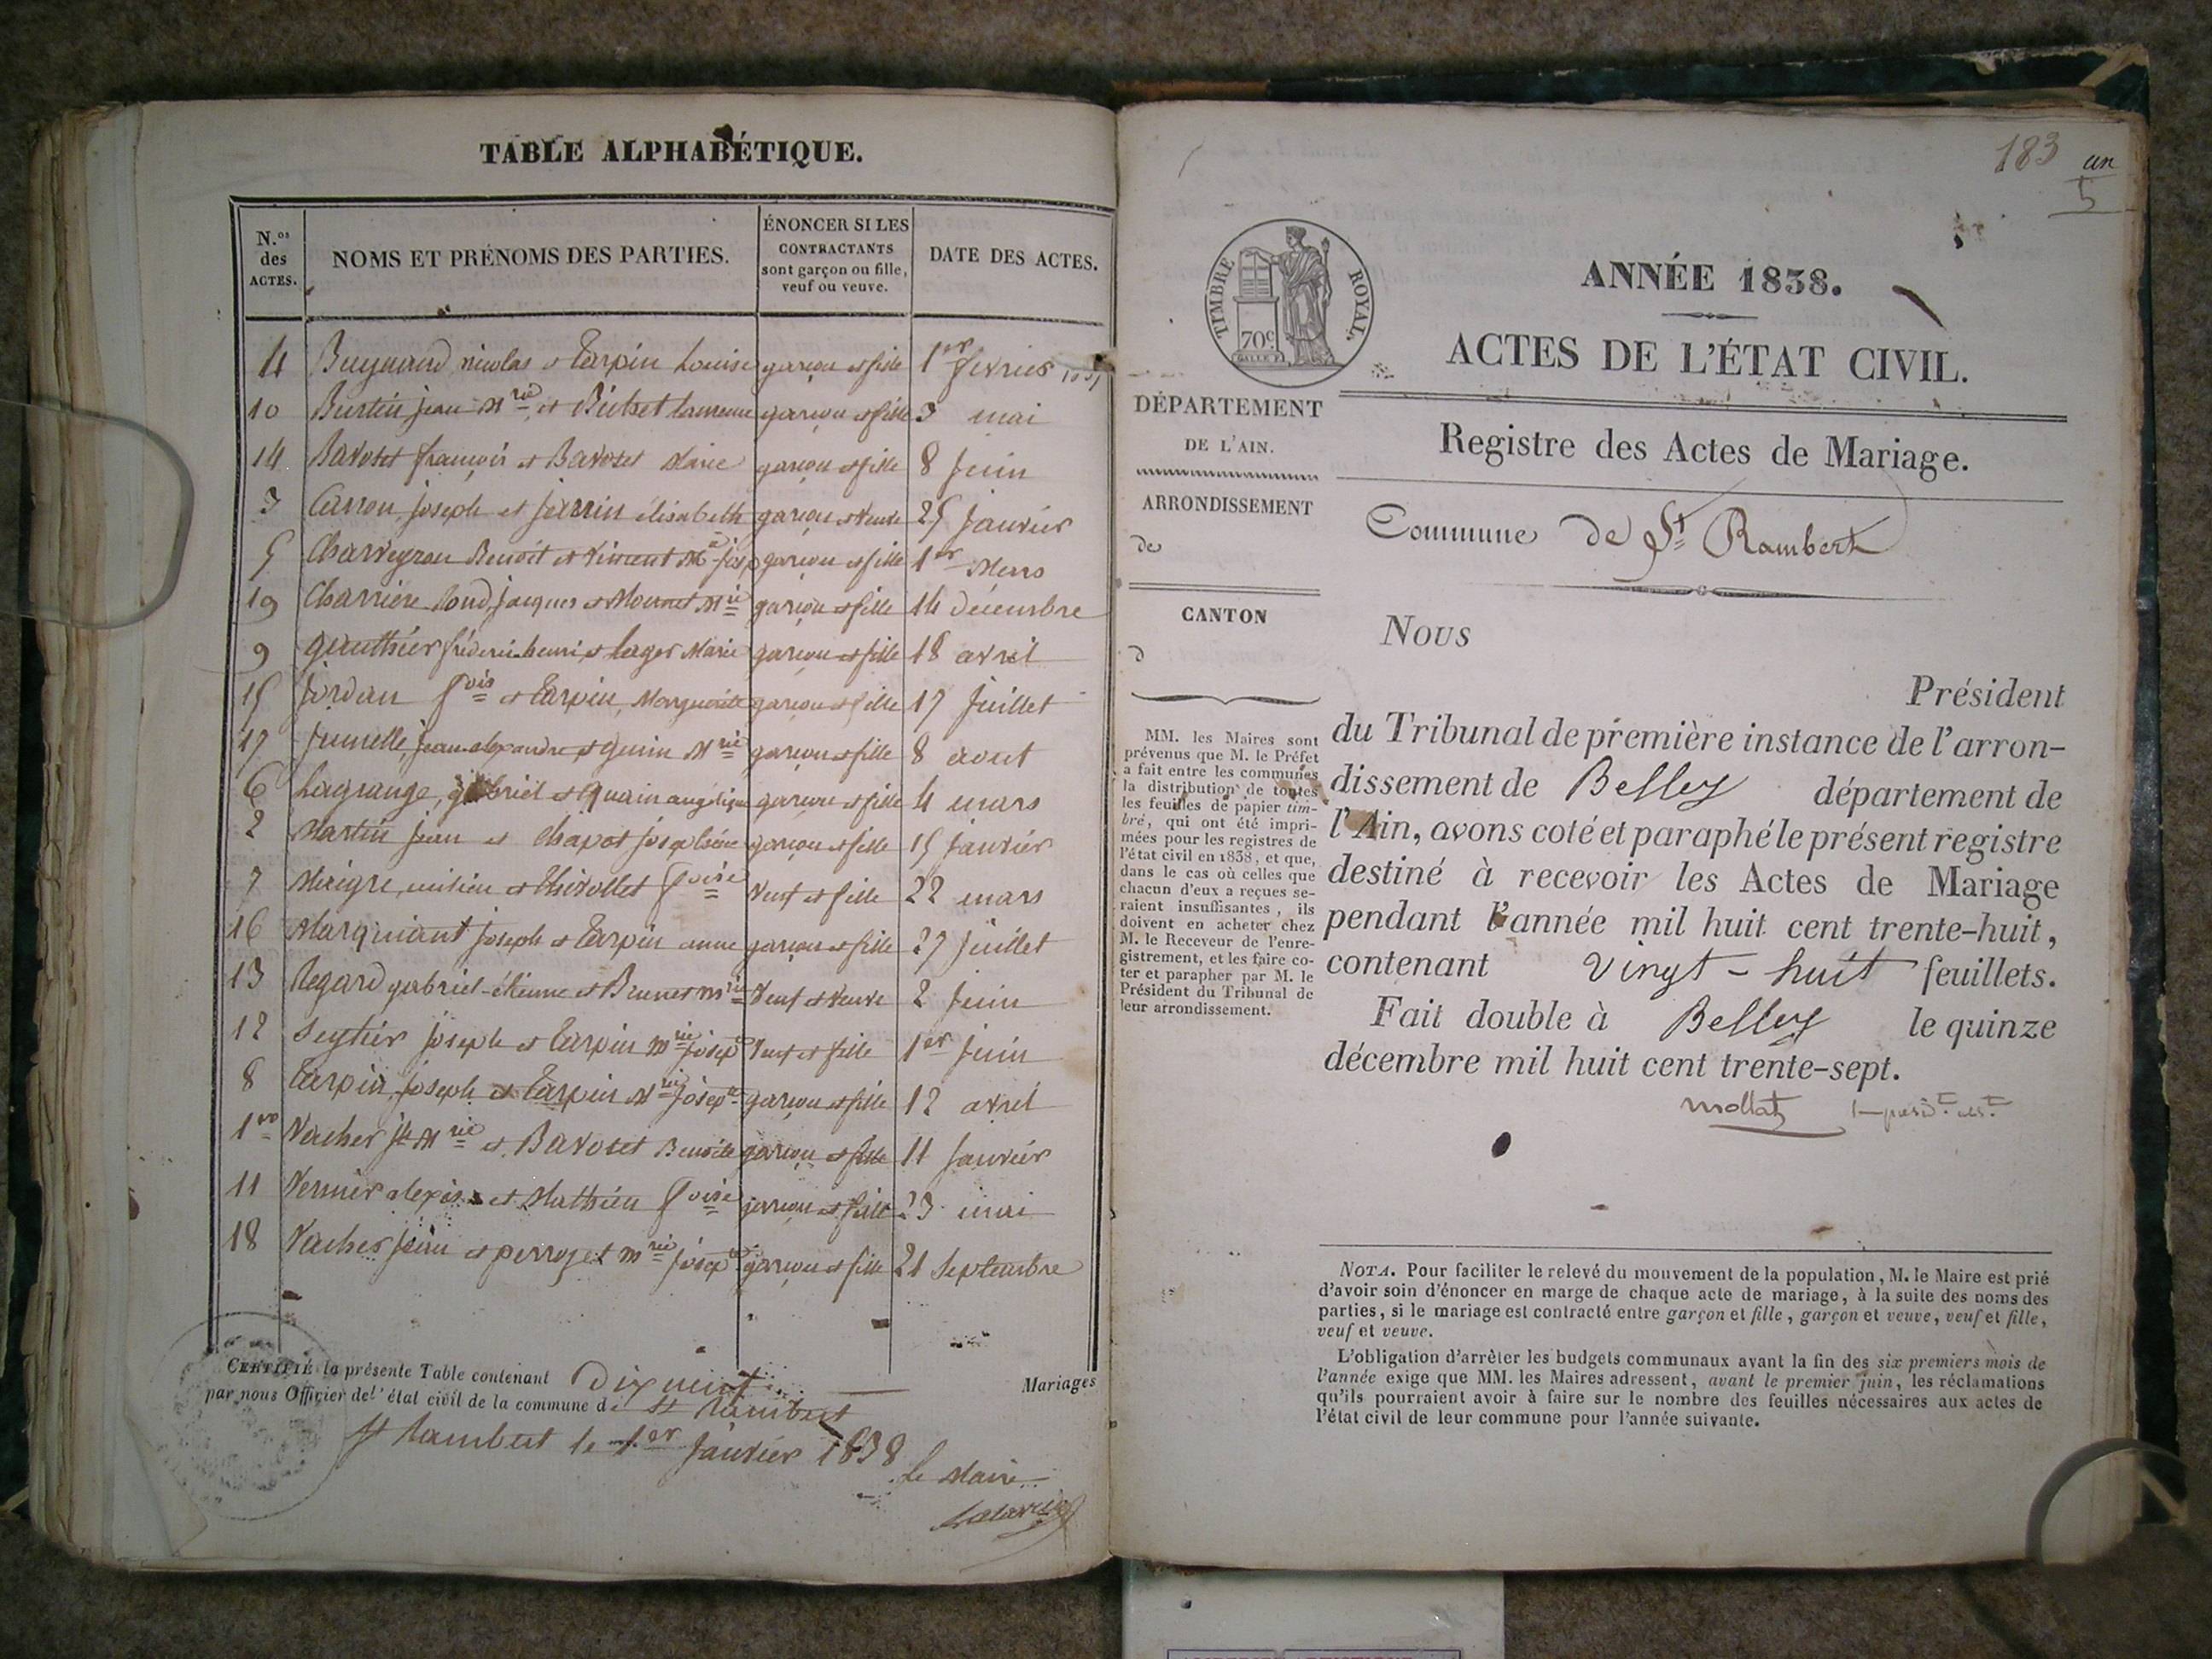 TABLE ALPHABÉTIQUE.
N.os des ACTES.
NOMS ET PRÉNOMS DES PARTIES.
ÉNONCER SI LES CONTRACTANTS sont garçon ou fille, veuf ou veuve.
DATE DES ACTES.
4 nicolas et Tarpin Louise garçon et fille 1er fevrier
10 Burtin jean Mrie et garçon et fille 3 mai
14 Bavoset françois et Bavoset Marie garçon et fille 8 juin
3 Carron, joseph et jarrin élisabeth garçon et veuve 25 janvier
5 Charveyron Benoit et Vincent Mie josep garçon et fille 1er Mars
19 Charrière jacques et Mie garçon et fille 14 décembre
9 gauthier fréderic henri et Lager Marie garçon et fille 18 avril
15 jordan fois et Tarpin, Marguerite garçon et fille 17 juillet
17 jumelle, jean alexandre et guinin Mrie garçon et fille 8 aout
6 Lagrange, gabriel et quain angélique garçon et fille 4 mars
2 Martin jean et Chapot joséphine garçon et fille 15 janvier
7 Maigre, et Thivollet foise veuf et fille 22 mars
16 Marquiant joseph et Tarpin anne garçon et fille 27 juillet
13 Regard gabriel-étienne et Brunet mrie veuf et veuve 2 juin
12 Seytier joseph et Tarpin mrie josepe veuf et fille 1er juin
8 Tarpin, joseph et Tarpin Mrie josepe garçon et fille 12 avril
1ro Vacher Mrie et Bavoset Benoite garçon et fille 11 janvier
11 Vernier alexis et Mathieu foise garçon et fille 23 mai
18 Vacher jean et perrozet mrie josepe garçon et fille 21 Septembre
CERTIFIÉ la présente Table contenant Dix neuf Mariages
par nous Officier de l'état civil de la commune de St Rambert
St Rambert le 1er janvier 1838
le Maire
183 un
5
TIMBRE ROYAL
70c.
ANNÉE 1838.
ACTES DE L'ÉTAT CIVIL.
DÉPARTEMENT
DE L'AIN.
ARRONDISSEMENT
de
CANTON
d
MM. les Maires sont
prévenus que M. le Préfet
a fait entre les communes
la distribution de toutes
les feuilles de papier tim-
bré, qui ont été impri-
mées pour les registres de
l'état civil en 1838, et que,
dans le cas où celles que
chacun d'eux a reçues se-
raient insuffisantes, ils
doivent en acheter chez
M. le Receveur de l'enre-
gistrement, et les faire co-
ter et parapher par M. le
Président du Tribunal de
leur arrondissement.
Registre des Actes de Mariage.
Commune de St Rambert
Nous
Président
du Tribunal de première instance de l'arron-
dissement de Belley département de
l'Ain, avons coté et paraphé le présent registre
destiné à recevoir les Actes de Mariage
pendant l'année mil huit cent trente-huit,
contenant vingt-huit feuillets.
Fait double à Belley le quinze
décembre mil huit cent trente-sept.
Mollat
NOTA. Pour faciliter le relevé du mouvement de la population, M. le Maire est prié
d'avoir soin d'énoncer en marge de chaque acte de mariage, à la suite des noms des
parties, si le mariage est contracté entre garçon et fille, garçon et veuve, veuf et fille,
veuf et veuve.
L'obligation d'arrêter les budgets communaux avant la fin des six premiers mois de
l'année exige que MM. les Maires adressent, avant le premier juin, les réclamations
qu'ils pourraient avoir à faire sur le nombre des feuilles nécessaires aux actes de
l'état civil de leur commune pour l'année suivante.